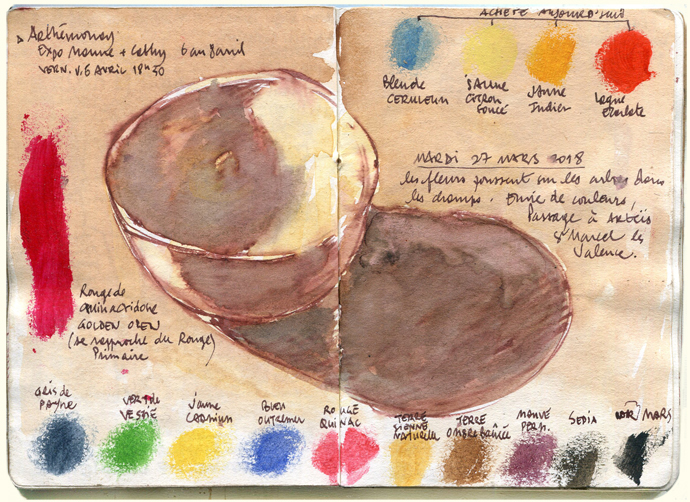 Expo Manue + Cathy 6 au 8 avril
VERN. V. 6 AVRIL 18H30
ACHETÉ AUJOURD'HUI
Bleu de
CERULEUM
JAUNE
CITRON
FONCÉ
JAUNE
Indien
Laque
Ecarlate
MARDI 27 MARS 2018
les fleurs poussent sur les arbres dans
les champs. Envie de couleurs,
Passage à
St Marcel les
Valence.
Rouge de
Quinacridone
GOLDEN OPEN
(se rapproche du Rouge)
Primaire
GRIS DE
PAYNE
VERT DE
VESSIE
Jaune
CADMIUM
BLEU
OUTREMER
ROUGE
QUINAC
TERRE
SIENNE
NATURELLE
TERRE
OMBRE BRÛLÉE
MAUVE
PERM.
SEPIA
NOIR MARS